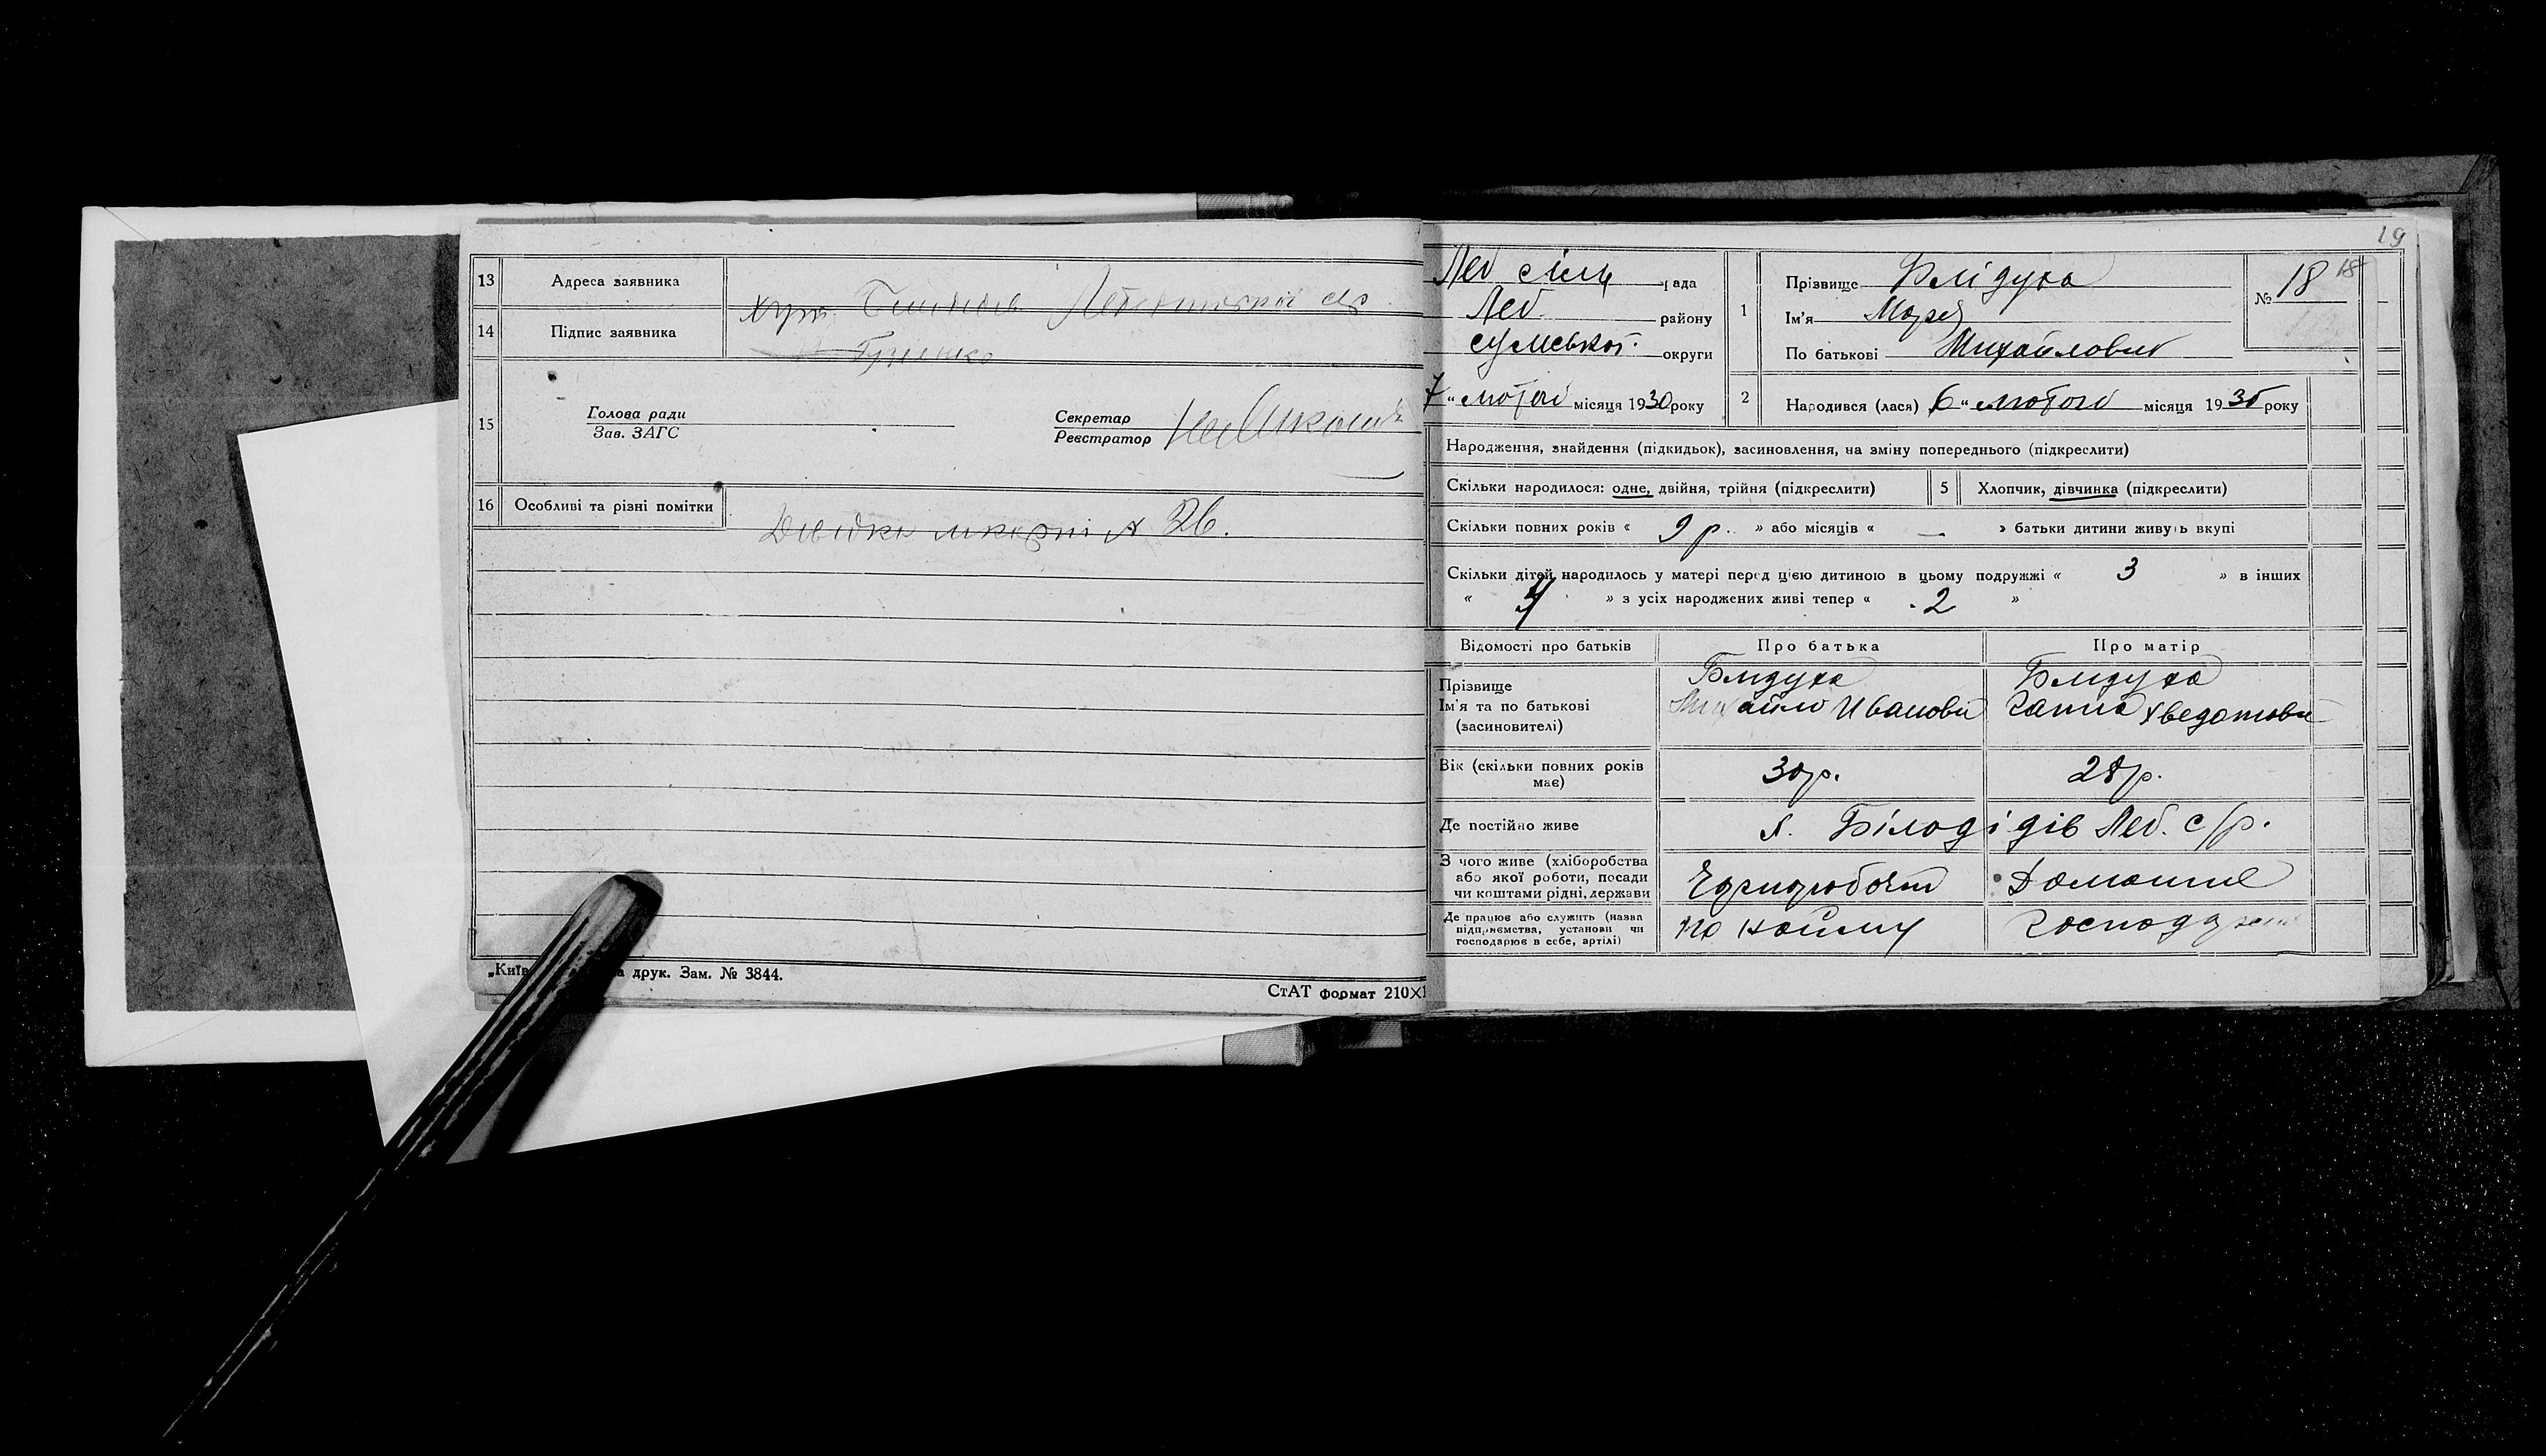 13 Адреса заявника хут.
14 Підпис заявника
15 Голова ради
Зав. ЗАГС
Секретар
Реєстратор
16 Особливі та різні помітки № 26.
„Київ друк. Зам. № 3844.
СтАТ формат 210×1
19
Леб сіль рада
Леб. району
сумської округи
7 " лютого місяця 1930 року
1 Прізвище Блідуха
Ім'я Марія
По батькові Михайловна
№ 18 18
2 Народився (лася) 6 " лютого місяця 1930 року
Народження, знайдення (підкидьок), засиновлення, на зміну попереднього (підкреслити)
Скільки народилося: одне, двійня, трійня (підкреслити) 5 Хлопчик, дівчинка (підкреслити)
Скільки повних років « 9 р. » або місяців « — » батьки дитини живуть вкупі
Скільки дітей народилось у матері перед цією дитиною в цьому подружжі « 3 » в інших
« » з усіх народжених живі тепер « 2 »
Відомості про батьків Про батька Про матір
Прізвище Блідуха Блідуха
Ім'я та по батькові Михайло Иванови Ганна Хведотовн
(засиновителі)
Вік (скільки повних років має) 30 р. 28 р.
Де постійно живе х. Білодідів Леб. с/р.
З чого живе (хліборобства
або якої роботи, посади
чи коштами рідні, держави Чорноробочий Домашнє
Де працює або служить (назва
підприємства, установи чи
господарює в себе, артілі) по найму господар